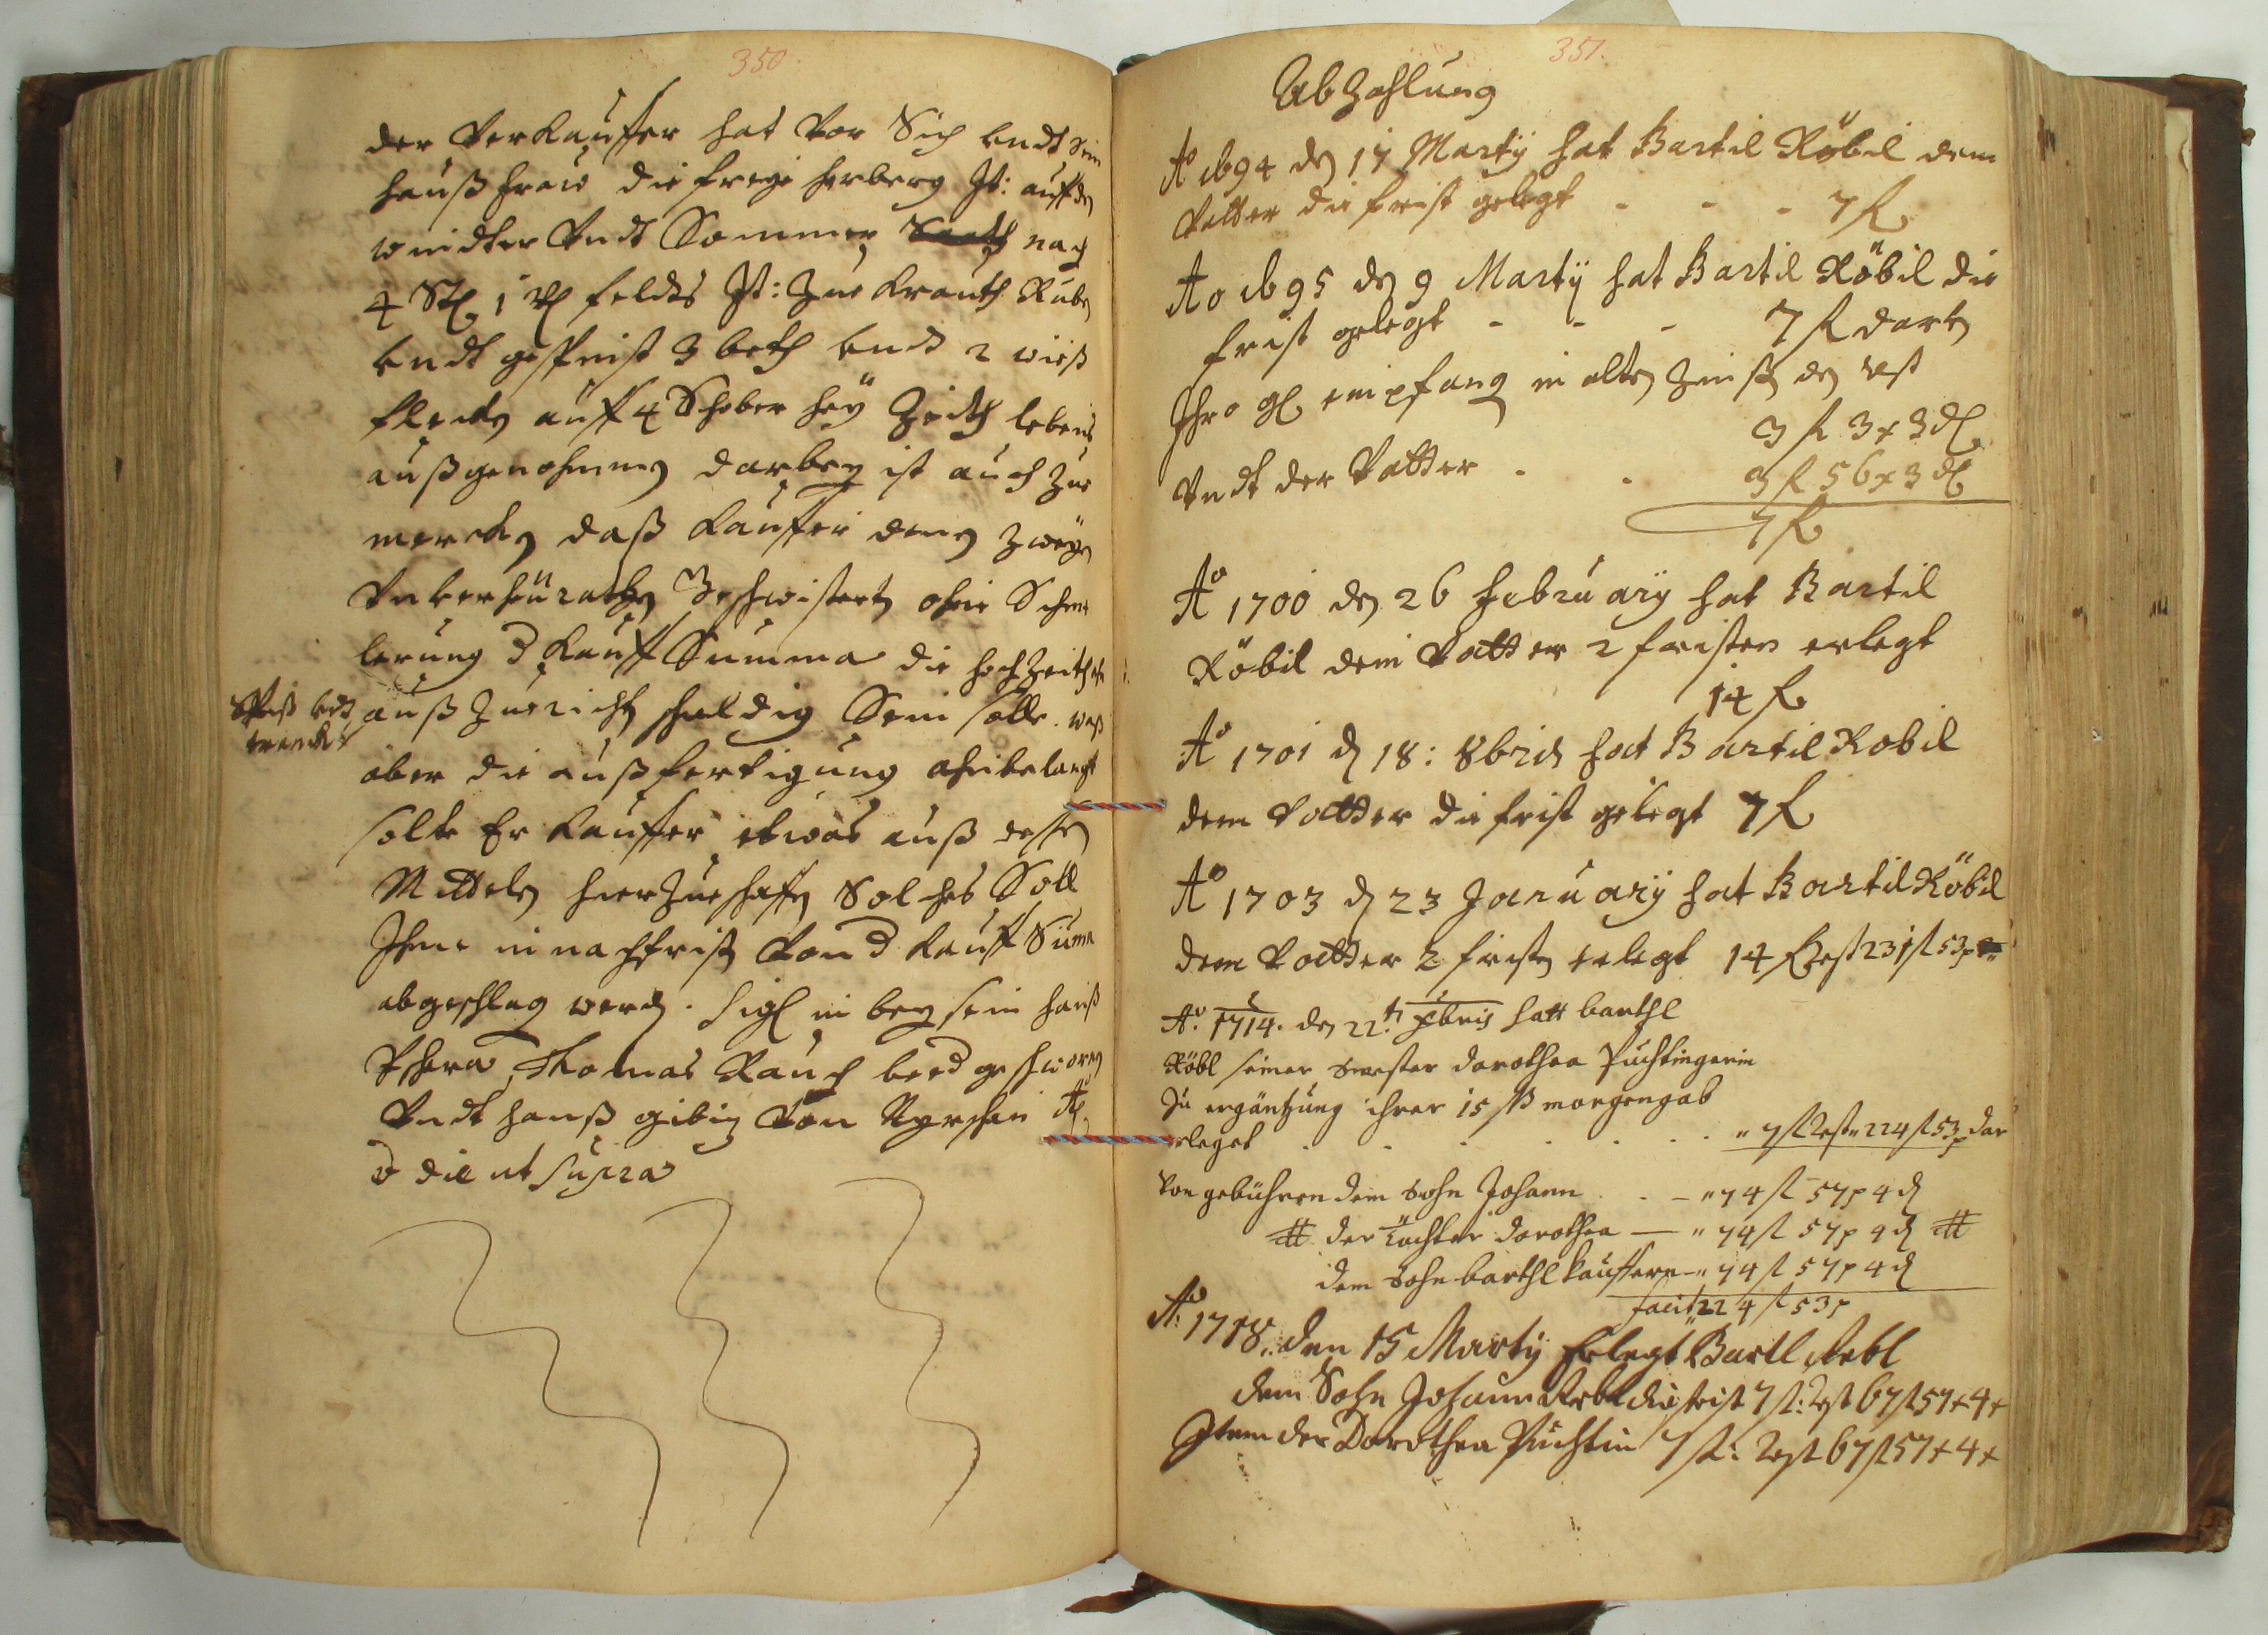 350.
der Verkauffer hat vor Sich undt sein
haußfraw die freye herberg It: auff den
windter undt Sommer nach
4 St 1 fl feldts It: zue Krauth Ruben
undt gespeist 3 beth undt 2 wieß
fleckhen auff 4 Schober hey Zeith lebens
außgenohmmen darbey ist auch zue
merckhen daß Kauffer denen zweyen
Unverheürathen Geschwistert ohne Schme
lerung d Kauff Summa die hochzeithen
Speiß undt
trunckh
außzuerichten schuldig Sein solle. waß
aber die außfertigung ahnbelangt
solte Er Kauffer etwas auß dessen
Mittelen hierzueschaffen Solches Soll
Ihme in nachfrist von d Kauff Suma
abgeschlag werden. Sigl in beysein hanß
Thomas Rauch beed geschworen
Undt hanß gibiz von
d die ut supra
351.
Abzahlung
Ao 1694 den 17 Martÿ hat Bartil Röbil dem
Vatter die frist gelegt - - - 7 fl
Ao 1695 den 9 Martÿ hat Bartil Röbil die
frist gelegt - - - 7 fl darvon
Ihro gl empfang in alten Zinsen den rest
3 fl 3 x 3 dl
Undt der Vatter - - 3 fl 56 x 3 dl
7 fl
Ao 1700 den 26 Februarÿ hat Bartil
Röbil dem Vatter 2 fristen erlegt
14 fl
Ao 1701 d 18: 8bris hat Bartil Robil
dem Vatter die frist gelegt 7 fl
Ao 1703 d 23 Januarÿ hat Bartil Röbil
dem Vatter 2 fristen erlegt 14 fl Rest 231 fl 53 x
Ao. 1714. den 22.t Xbris hatt barthl
Röbl seiner swester dorothea Puchtingerin
Zu ergäntzung ihrer 15 ß morgengab
erleget . . . . . " 7 fl Rest " 224 fl 53 x dar
von gebühren dem sohn Johann . . - " 74 fl 57 x 4 d
# der tochter dorothea — " 74 fl 57 x 4 d #
dem sohn barthl kauffern - " 74 fl 57 x 4 d
facit 224 fl 53 x
Ao: 1718. den 15 Martÿ Erlegt Bartl Rebl
dem Sohn Johann Rebl die frist 7 fl: Rest 67 fl 57 x 4 x
Item der Dorothea Puchtin 7 fl: Rest 67 fl 57 x 4 x